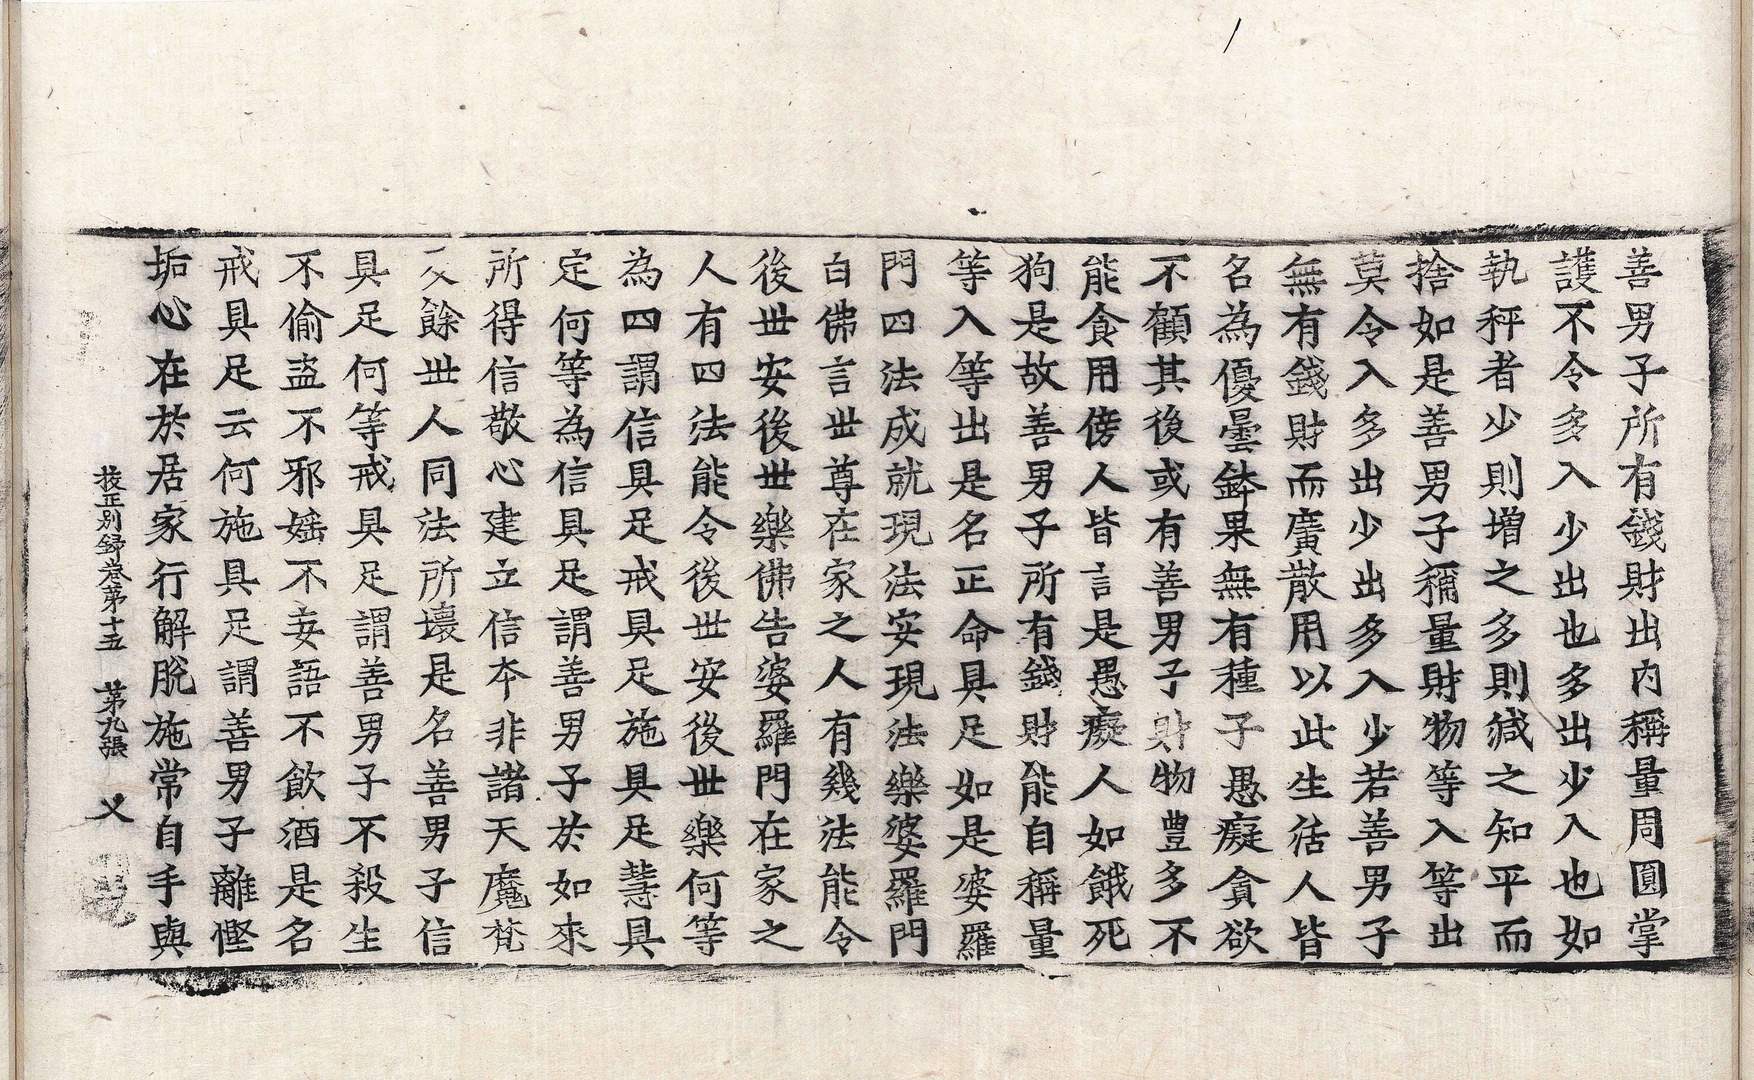 善男子所有錢財出內稱量周圓掌
護不令多入少出也多出少入也如
執秤者少則増之多則減之知平而
捨如是善男子稱量財物等入等出
莫令入多出少出多入少若善男子
無有錢財而廣散用以此生活人皆
名為優曇鉢果無有種子愚癡貪欲
不顧其後或有善男子財物豊多不
能食用傍人皆言是愚癡人如餓死
狗是故善男子所有錢財能自稱量
等入等出是名正命具足如是婆羅
門四法成就現法安現法樂婆羅門
白佛言世尊在家之人有幾法能令
後世安後世樂佛告婆羅門在家之
人有四法能令後世安後世樂何等
為四謂信具足戒具足施具足慧具
定何等為信具足謂善男子於如來
所得信敬心建立信本非諸天魔梵
及餘世人同法所壞是名善男子信
具足何等戒具足謂善男子不殺生
不偷盜不邪婬不妄語不飲酒是名
戒具足云何施具足謂善男子離慳
垢心在於居家行解脫施常自手與
挍正別録卷第十五 第九張 义